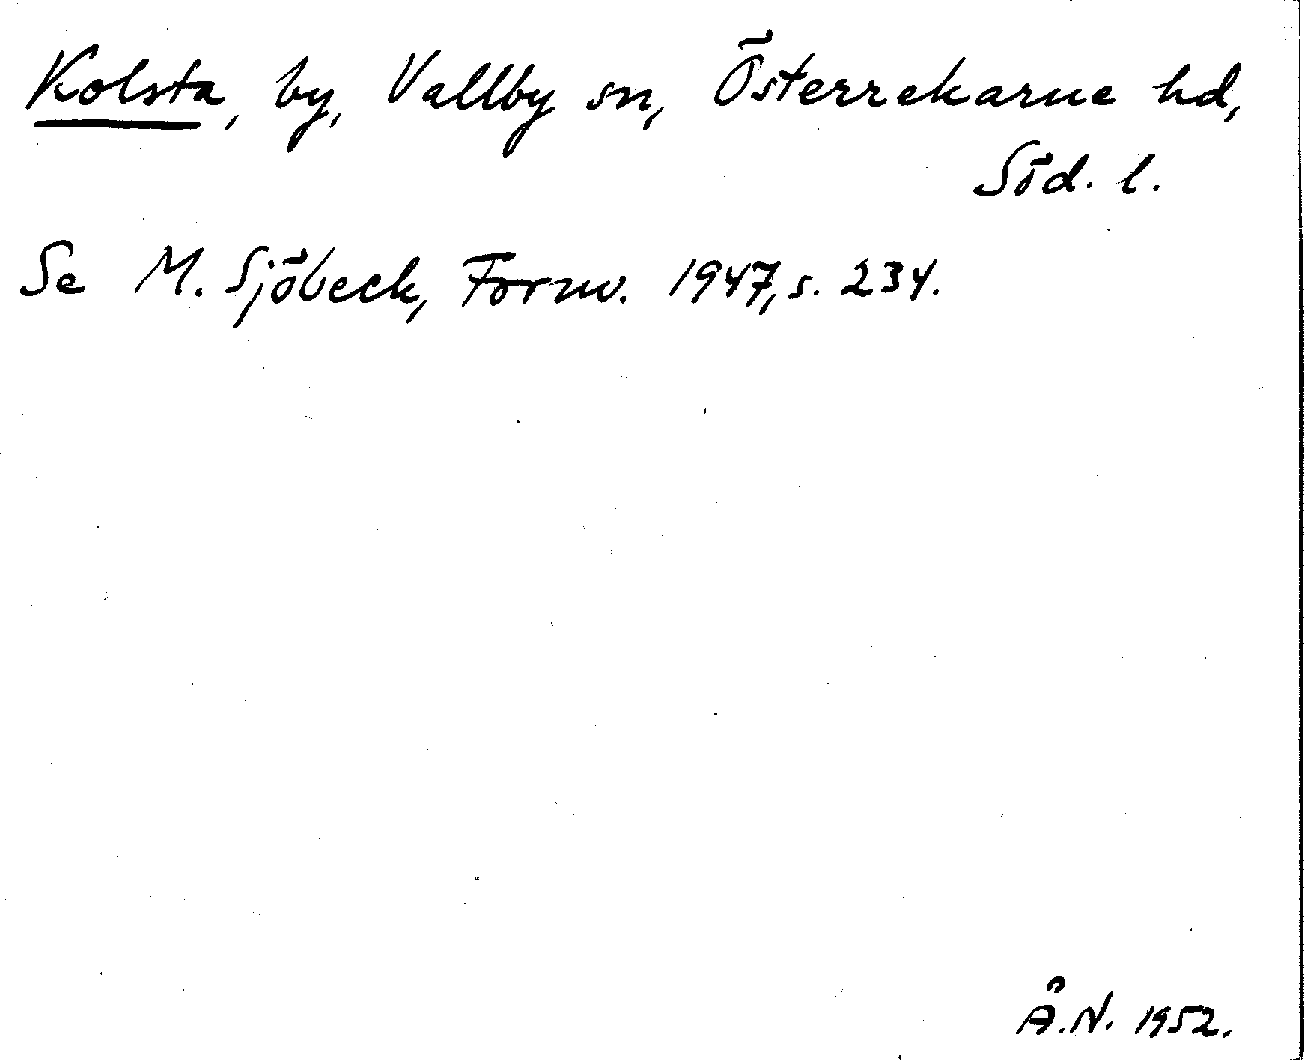 Kolsta, by, Vallby sn, Österrekarne hd,
Söd. l.
Se M. Sjöbeck, Fornv. 1947, s. 234.
Å.N. 1952.